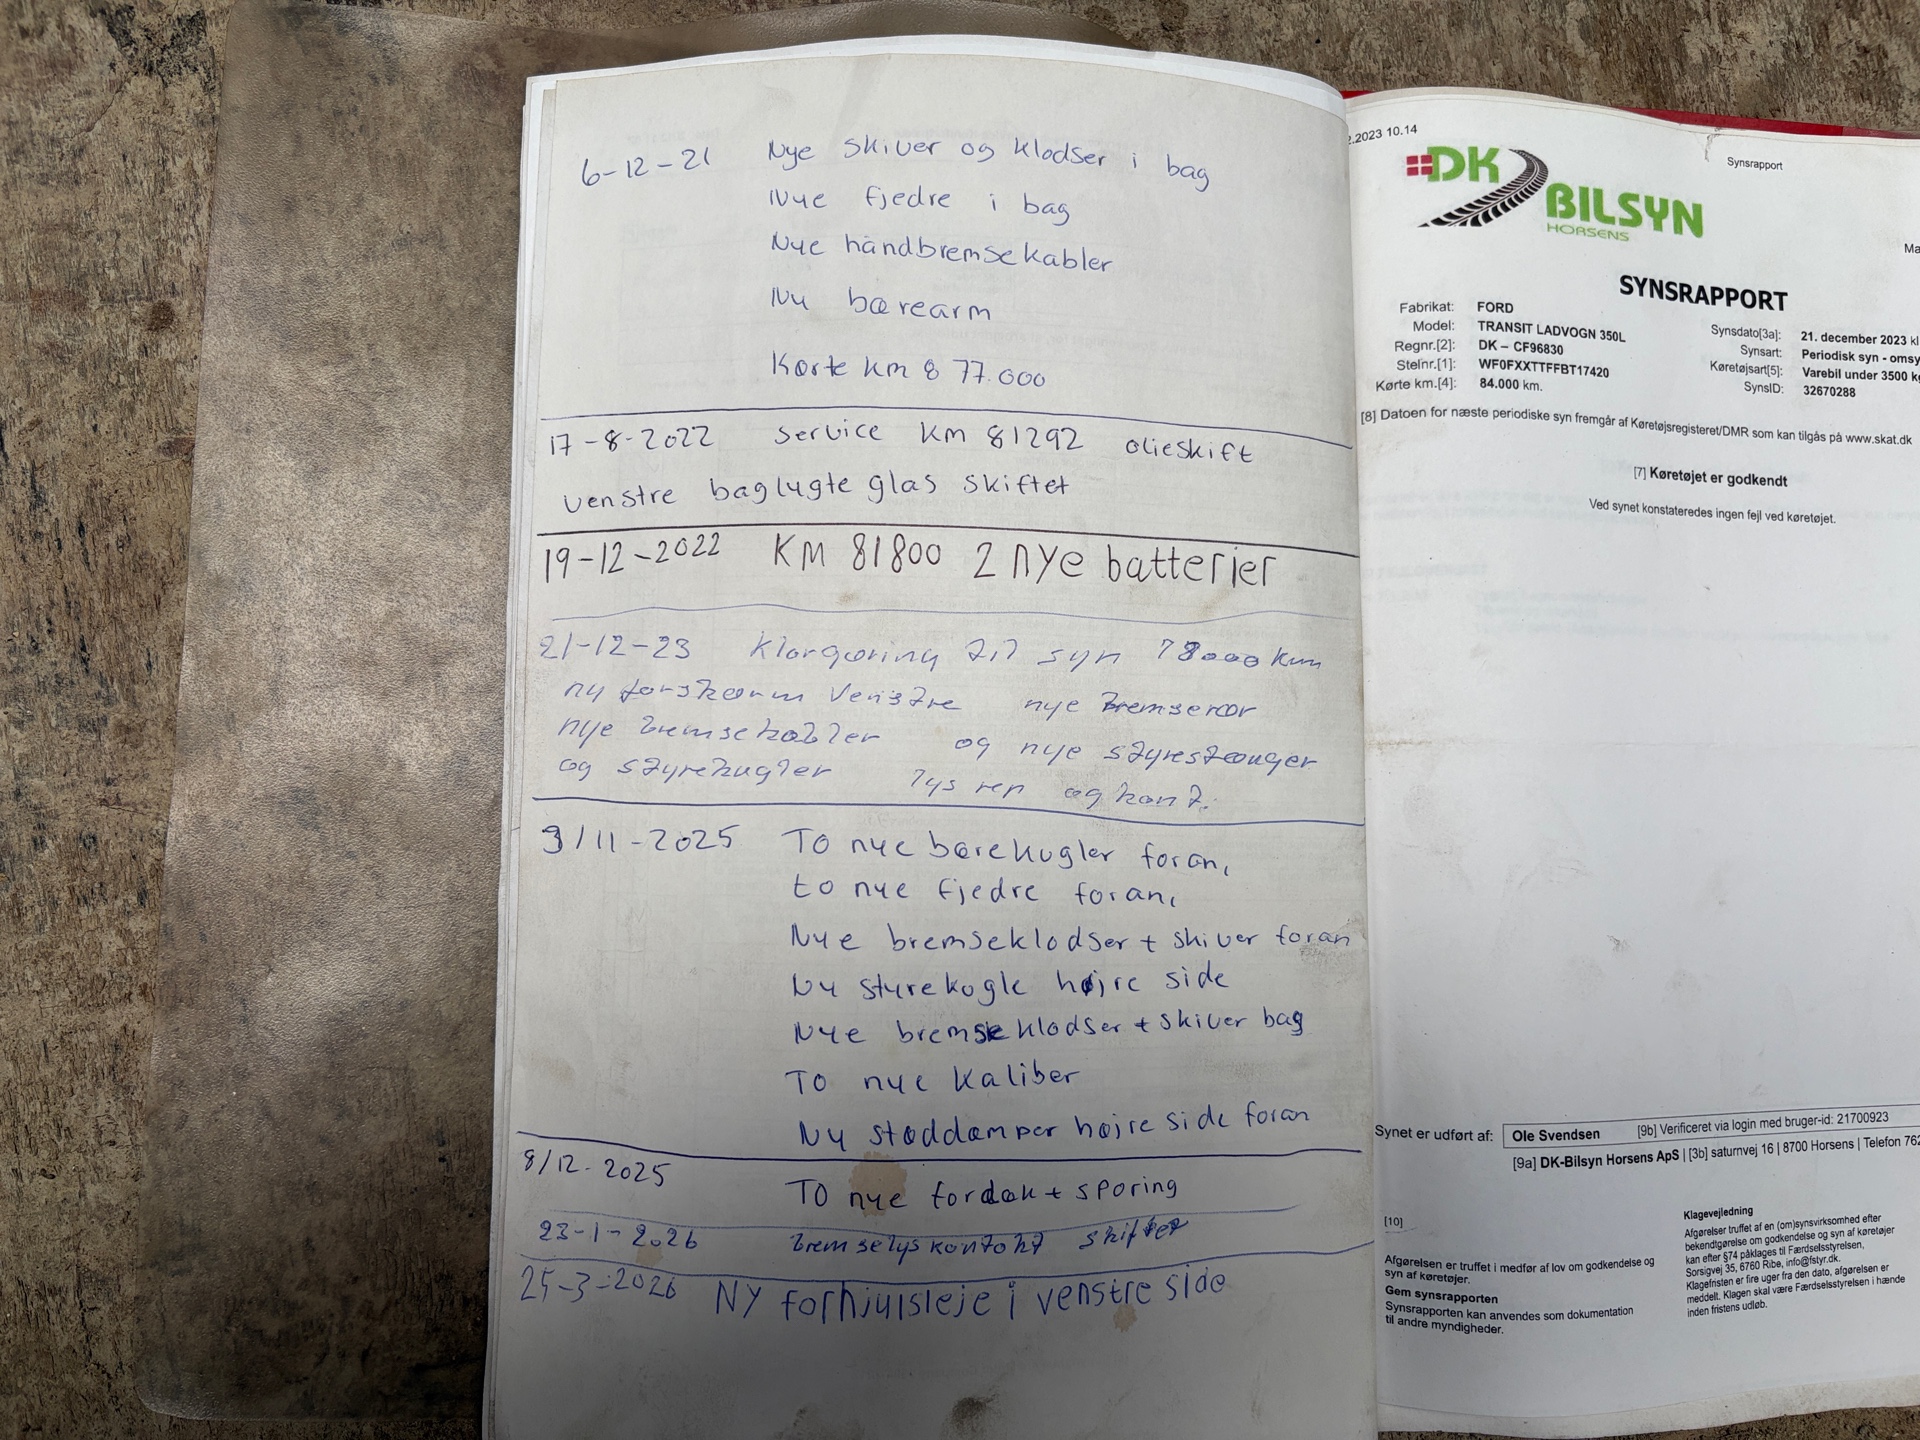 6-12-21 Nye skiver og klodser i bag
Nye fjedre i bag
Nye håndbremsekabler
Ny bærearm
Kørte km 8 77.000
17-8-2022 Service KM 81292 olieskift
venstre baglygte glas skiftet
19-12-2022 KM 81800 2 nye batterier
21-12-23 Klargøring til syn 78000 km
ny forskærm venstre nye bremserør
nye bremsekabler og nye styrestænger
og styrekugler lys rep og kont.
3/11-2025 To nye bærekugler foran,
to nye fjedre foran,
Nye bremseklodser + skiver foran
Ny styrekugle højre side
Nye bremseklodser + skiver bag
To nye kaliber
Ny støddæmper højre side foran
8/12-2025 To nye fordæk + sporing
23-1-2026 bremselys kontakt skiftet
25-3-2026 NY forhjulsleje i venstre side
.2023 10.14
Synsrapport
DK
BILSYN
HORSENS
Ma
SYNSRAPPORT
Fabrikat: FORD
Model: TRANSIT LADVOGN 350L
Regnr.[2]: DK – CF96830
Stelnr.[1]: WF0FXXTTFFBT17420
Kørte km.[4]: 84.000 km.
Synsdato[3a]: 21. december 2023 kl
Synsart: Periodisk syn - omsy
Køretøjsart[5]: Varebil under 3500 kg
SynsID: 32670288
[8] Datoen for næste periodiske syn fremgår af Køretøjsregisteret/DMR som kan tilgås på www.skat.dk
[7] Køretøjet er godkendt
Ved synet konstateredes ingen fejl ved køretøjet.
Synet er udført af: Ole Svendsen [9b] Verificeret via login med bruger-id: 21700923
[9a] DK-Bilsyn Horsens ApS | [3b] saturnvej 16 | 8700 Horsens | Telefon 762
[10]
Afgørelsen er truffet i medfør af lov om godkendelse og
syn af køretøjer.
Gem synsrapporten
Synsrapporten kan anvendes som dokumentation
til andre myndigheder.
Klagevejledning
Afgørelser truffet af en (om)synsvirksomhed efter
bekendtgørelse om godkendelse og syn af køretøjer
kan efter §74 påklages til Færdselsstyrelsen,
Sorsigvej 35, 6760 Ribe, info@fstyr.dk.
Klagefristen er fire uger fra den dato, afgørelsen er
meddelt. Klagen skal være Færdselsstyrelsen i hænde
inden fristens udløb.